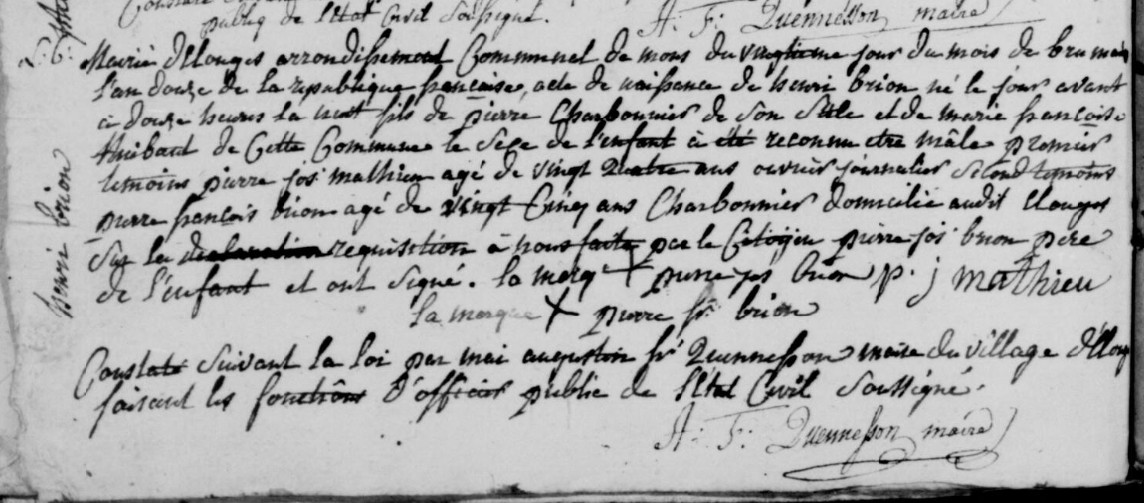 publiq de l'Etat Civil soussigné.
A. F. Quennesson maire
Mairie d'Elouges arrondissement Communnel de mons du vingtieme jour du mois de brumair
l'an douze de la republique française, acte de naissance de henri brion né le jour avant
à douze heures la nuit fils de pierre Charbonnier de son stile et de marie françoise
thiebaut de Cette Commune le sexe de l'enfant à été reconnu etre mâle premier
temoins pierre jos: mathieu agé de vingt quatre ans ouvrier journalier second temoins
pierre françois brion agé de vingt Cinq ans Charbonnier domicilié audit Elouges
sur la declaration requisition à nous faite par le Citoyen pierre jos: brion pere
de l'enfant et ont signé. la merq + pierre jos brion p. j mathieu
la merque + pierre fr brion
Constaté suivant la loi par moi augustin fr Quennesson maire du village d'Eloug
faisant les fonctions d'officier public de l'Etat Civil soussigné.
A. F. Quennesson maire
henri brion